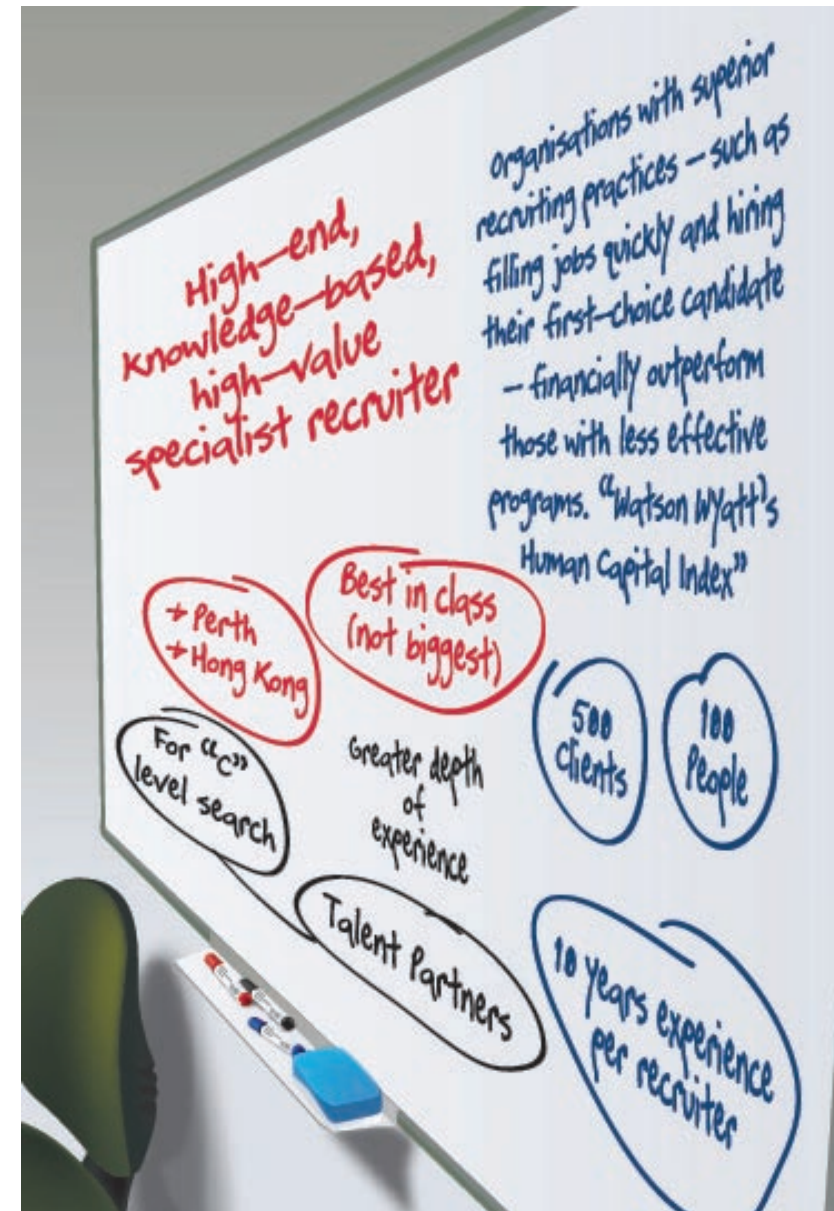 High-end,
knowledge-based,
high-value
specialist recruiter
Organisations with superior
recruiting practices – such as
filling jobs quickly and hiring
their first-choice candidate
– financially outperform
those with less effective
programs. “Watson Wyatt's
Human Capital Index”
→ Perth
→ Hong Kong
Best in class
(not biggest)
500
Clients
100
People
For “C”
level search
Greater depth
of
experience
Talent Partners
10 Years experience
per recruiter